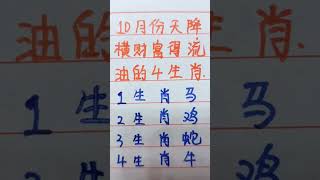 10月份天降
横财富得流
油的4生肖.
1生肖马
2生肖鸡
3生肖蛇
4生肖牛